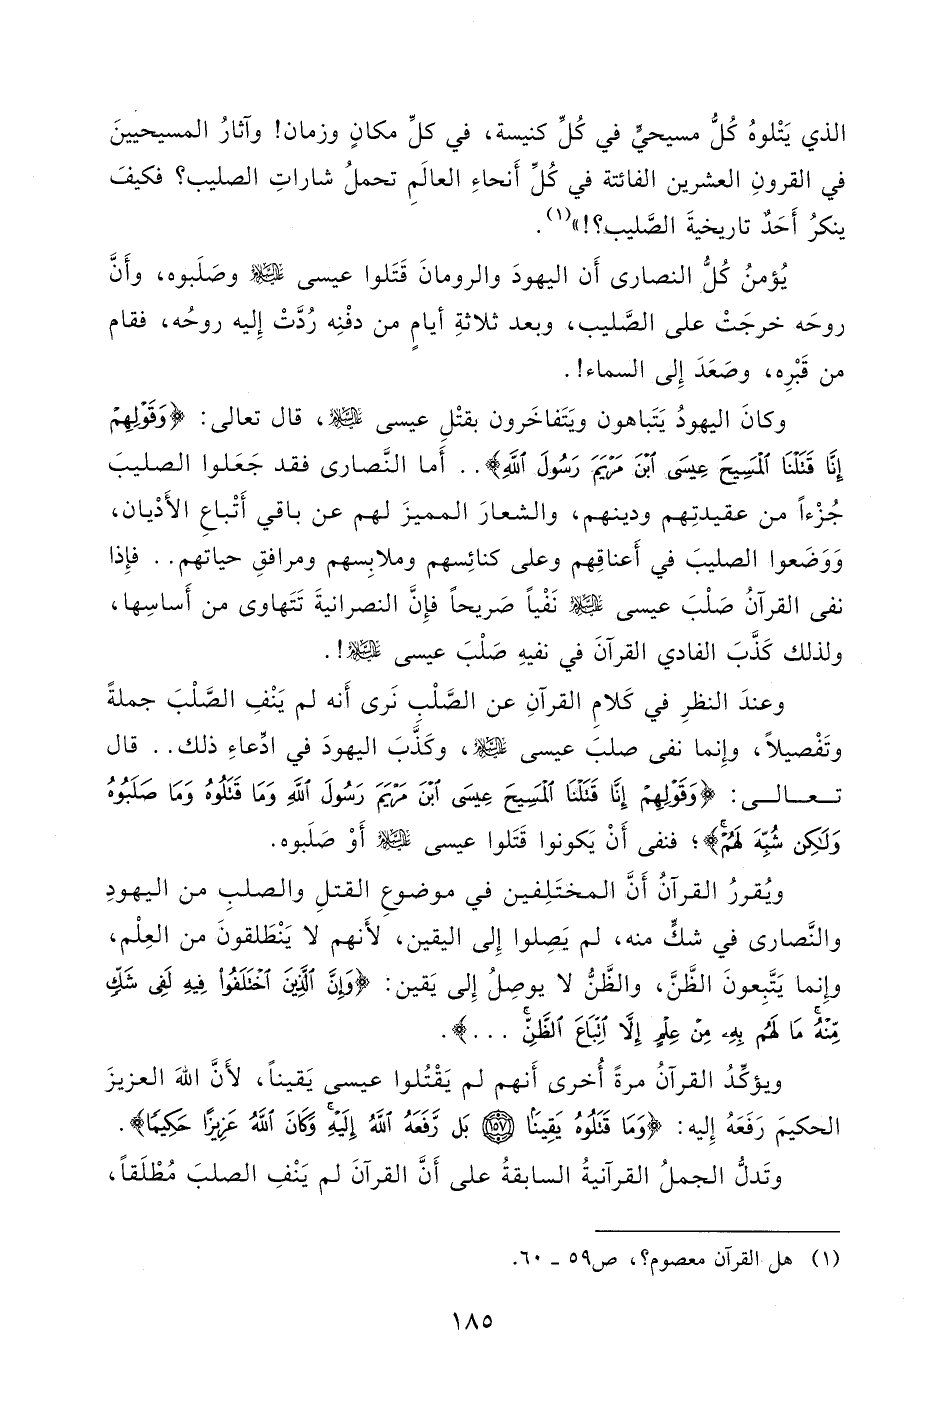 الذي يَتْلوهُ كُلُّ مسيحيٍّ في كُلِّ كنيسة، في كلِّ مكانٍ وزمان! وآثارُ المسيحيينَ
في القرونِ العشرين الفائتة في كُلِّ أَنحاءِ العالَمِ تحملُ شاراتِ الصليب؟ فكيفَ
ينكرُ أَحَدٌ تاريخيةَ الصَّليب؟!»(١).
يُؤمنُ كُلُّ النصارى أَن اليهودَ والرومانَ قَتَلوا عيسى عَلَيْهِ السَّلَام وصَلَبوه، وأَنَّ
روحَه خرجَتْ على الصَّليب، وبعد ثلاثةِ أيامٍ من دفْنِه رُدَّتْ إِليه روحُه، فقام
من قَبْرِه، وصَعَدَ إِلى السماء!.
وكانَ اليهودُ يَتَباهون ويَتَفاخَرون بقتْلِ عيسى عَلَيْهِ السَّلَام، قال تعالى: ﴿وَقَوْلِهِمْ
إِنَّا قَتَلْنَا ٱلْمَسِيحَ عِيسَى ٱبْنَ مَرْيَمَ رَسُولَ ٱللَّهِ﴾.. أَما النَّصارى فقد جَعَلوا الصليبَ
جُزْءاً من عقيدتِهم ودينهم، والشعارَ المميزَ لهم عن باقي أَتْباعِ الأَدْيان،
وَوَضَعوا الصليبَ في أَعناقِهم وعلى كنائِسهم وملابِسهم ومرافقِ حياتهم.. فإِذا
نفى القرآنُ صَلْبَ عيسى عَلَيْهِ السَّلَام نَفْياً صَريحاً فإِنَّ النصرانيةَ تَتَهاوى من أَساسِها،
ولذلك كَذَّبَ الفادي القرآنَ في نفيهِ صَلْبَ عيسى عَلَيْهِ السَّلَام!.
وعندَ النظرِ في كَلامِ القرآنِ عن الصَّلْبِ نَرى أَنه لم يَنْفِ الصَّلْبَ جملةً
وتَفْصيلاً، وإِنما نفى صلبَ عيسى عَلَيْهِ السَّلَام، وكَذَّبَ اليهودَ في ادِّعاءِ ذلك.. قال
تعالى: ﴿وَقَوْلِهِمْ إِنَّا قَتَلْنَا ٱلْمَسِيحَ عِيسَى ٱبْنَ مَرْيَمَ رَسُولَ ٱللَّهِ وَمَا قَتَلُوهُ وَمَا صَلَبُوهُ
وَلَٰكِن شُبِّهَ لَهُمْۚ﴾؛ فنفى أَنْ يَكونوا قَتَلوا عيسى عَلَيْهِ السَّلَام أَوْ صَلَبوه.
ويُقررُ القرآنُ أَنَّ المختَلِفين في موضوعِ القتلِ والصلبِ من اليهودِ
والنَّصارى في شكٍّ منه، لم يَصِلوا إِلى اليقين، لأَنهم لا يَنْطَلقونَ من العِلْم،
وإِنما يَتَّبِعونَ الظَّنَّ، والظَّنُّ لا يوصِلُ إِلى يَقين: ﴿وَإِنَّ ٱلَّذِينَ ٱخْتَلَفُوا۟ فِيهِ لَفِى شَكٍّ
مِّنْهُۚ مَا لَهُم بِهِۦ مِنْ عِلْمٍ إِلَّا ٱتِّبَاعَ ٱلظَّنِّۚ ...﴾.
ويؤكِّدُ القرآنُ مرةً أُخرى أَنهم لم يَقْتُلوا عيسى يَقيناً، لأَنَّ اللهَ العزيزَ
الحكيمَ رَفَعَهُ إِليه: ﴿وَمَا قَتَلُوهُ يَقِينًۢا ١٥٧ بَل رَّفَعَهُ ٱللَّهُ إِلَيْهِۚ وَكَانَ ٱللَّهُ عَزِيزًا حَكِيمًا﴾.
وتَدلُّ الجملُ القرآنيةُ السابقةُ على أَنَّ القرآنَ لم يَنْفِ الصلبَ مُطْلَقاً،
(١) هل القرآن معصوم؟، ص٥٩ ـ ٦٠.
١٨٥